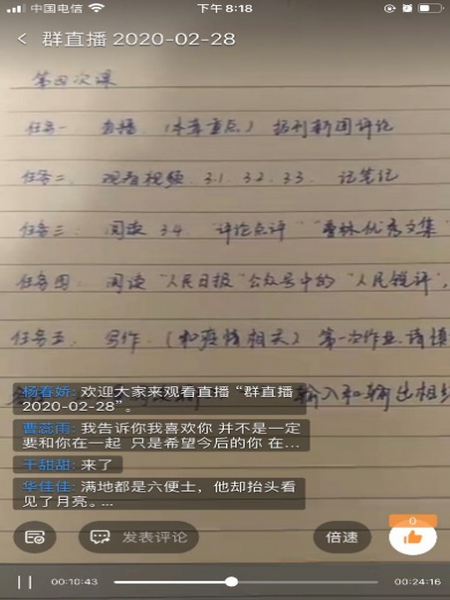 中国电信
下午 8:18
群直播 2020-02-28
第四次课
任务一 直播 (本章重点) 报刊新闻评论
任务二. 观看视频 3.1. 3.2. 3.3. 记笔记
任务三: 阅读 3.4. 评论点评 "
优秀文集"
任务四: 阅读 "人民日报"公众号中的 "人民锐评",
任务五. 写作. (和疫情相关) 第一次作业.请慎
输入和输出相
杨春娇: 欢迎大家来观看直播“群直播
2020-02-28”。
曹蕊雨: 我告诉你我喜欢你 并不是一定
要和你在一起 只是希望今后的你 在...
王甜甜: 来了
华佳佳: 满地都是六便士，他却抬头看
见了月亮。...
发表评论
倍速
0
00:10:43
00:24:16